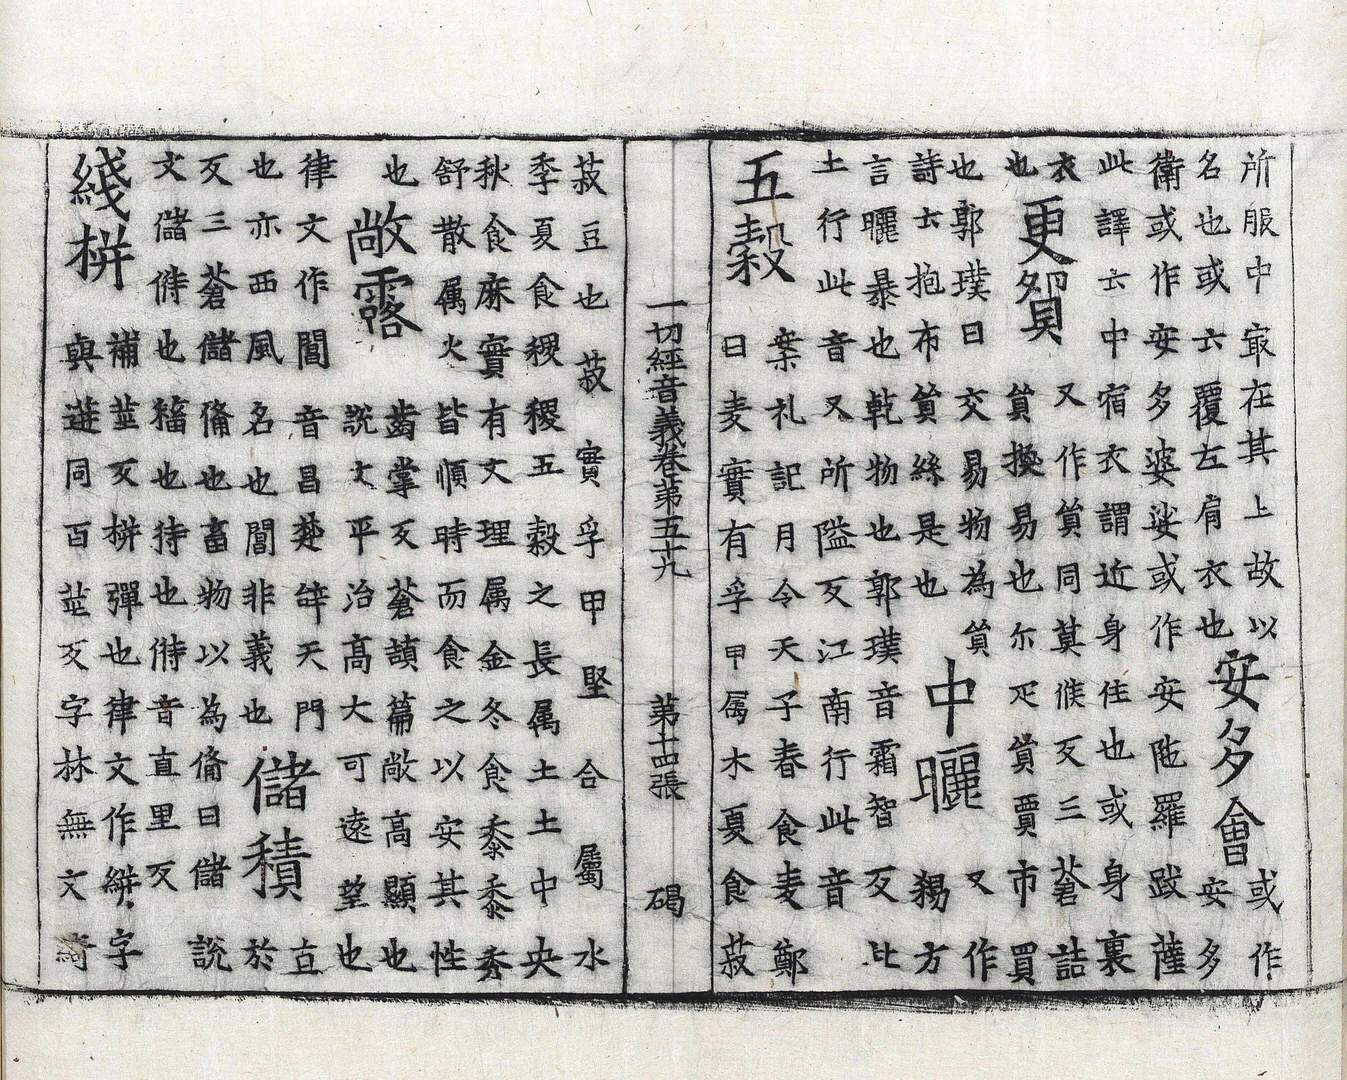 所服中㝡在其上故以
名也或云覆左肩衣也
安多會
或作
安多
衛或作安多婆娑或作安陁羅跋薩
此譯云中宿衣謂近身住也或身裏
衣
也
更貿
又作貿同莫候反三蒼詰
貿換易也尒疋貿賈市買
也郭璞曰交易物為貿
詩云抱布貿絲是也
中曬
又作
晹方
言曬暴也乾物也郭璞音霜智反北
土行此音又所隘反江南行此音
五穀
案礼記月令天子春食麦鄭
曰麦實有孚甲属木夏食菽
一切經音義卷苐五十九 苐十四張 碣
菽豆也菽實孚甲堅合屬水
季夏食稷稷五穀之長属土土中央
秋食麻實有文理属金冬食黍黍秀
舒散属火皆順時而食之以安其性
也
敞露
齒掌反蒼頡篇敞高顯也
說文平治高大可遠望也
律文作閶音昌楚辝天門
也亦西風名也閶非義也
儲積
直
於
反三蒼儲俻也畜物以為俻曰儲說
文儲偫也稸也待也偫音直里反
綫栟
補莖反栟彈也律文作絣字
與迸同百莖反字林無文